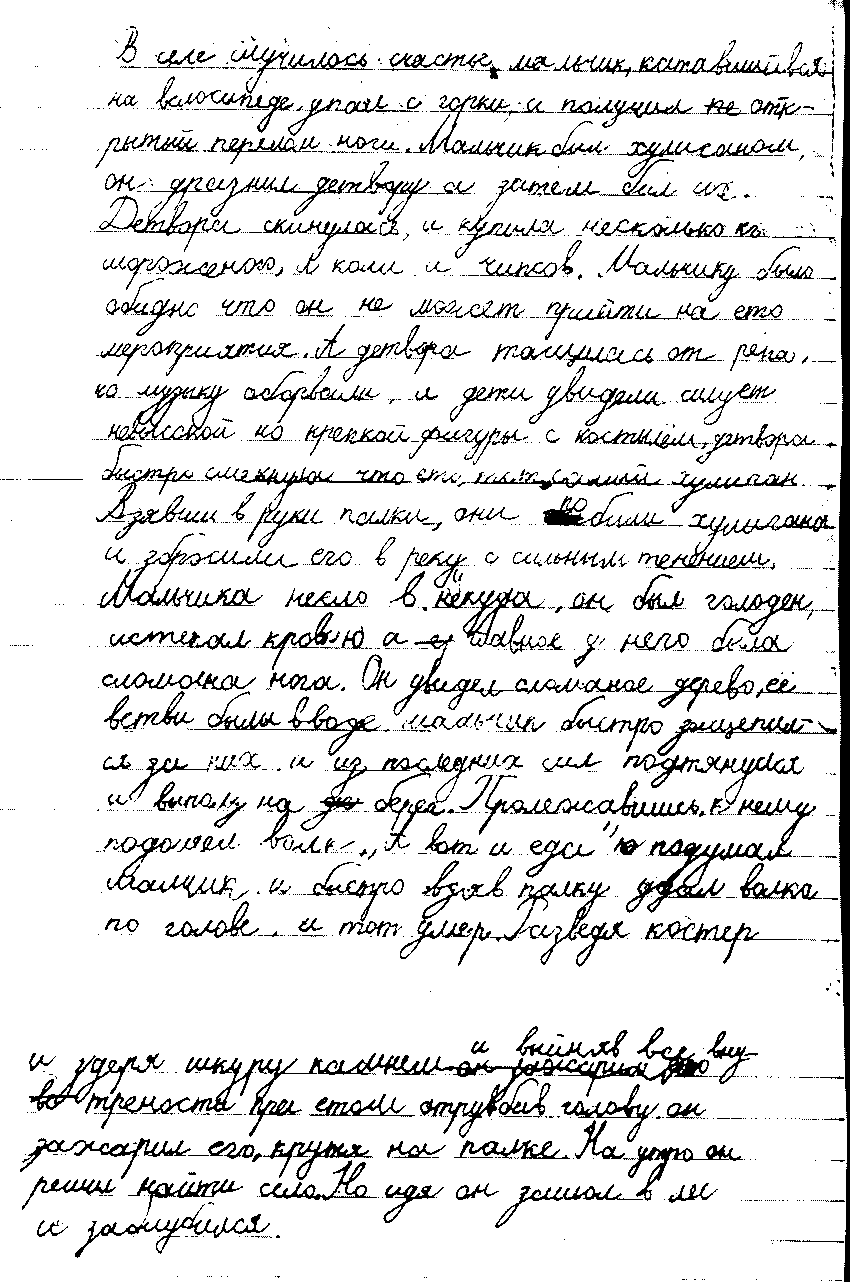 В селе случилось счастье, мальчик, катавшийвся
на велосипеде упал с горки, и получил не отк-
рытый перелом ноги. Мальчик был хулиганом,
он дразнил детвору а затем бил их.
Детвора скинулася, и купила несколько къ
мороженого, и коли и чипсов. Мальчику было
обидно что он не может прийти на ето
мероприятия. А детвора тащилась от репа,
но музику оборвали, и дети увидели силует
невысокой но крепкой фигуры с костылём, детвора
быстро смекнула что ето, тот самый хулиган
Взявши в руки палки, они побили хулигана
и збросили его в реку с сильным течением.
Мальчика несло в нёкуда, он был голоден,
истекал кровью а главное у него была
сломана нога. Он увидел сломаное дерево, её
ветви были в воде мальчик быстро зацепил-
ся за них и из последних сил подтянулся
и выполз на берег. Пролежавшись, к нему
подошел волк. „А вот и еда" подумал
малчик и быстро взяв палку удал волка
по голове, и тот умер. Разведя костер
и здеря шкуру камнем и выйняв все вну-
трености при етом отрубив голову он
зажарил его, крутя на палке. На утро он
решил найти село. Но идя он зашол в лес
и заблубился.